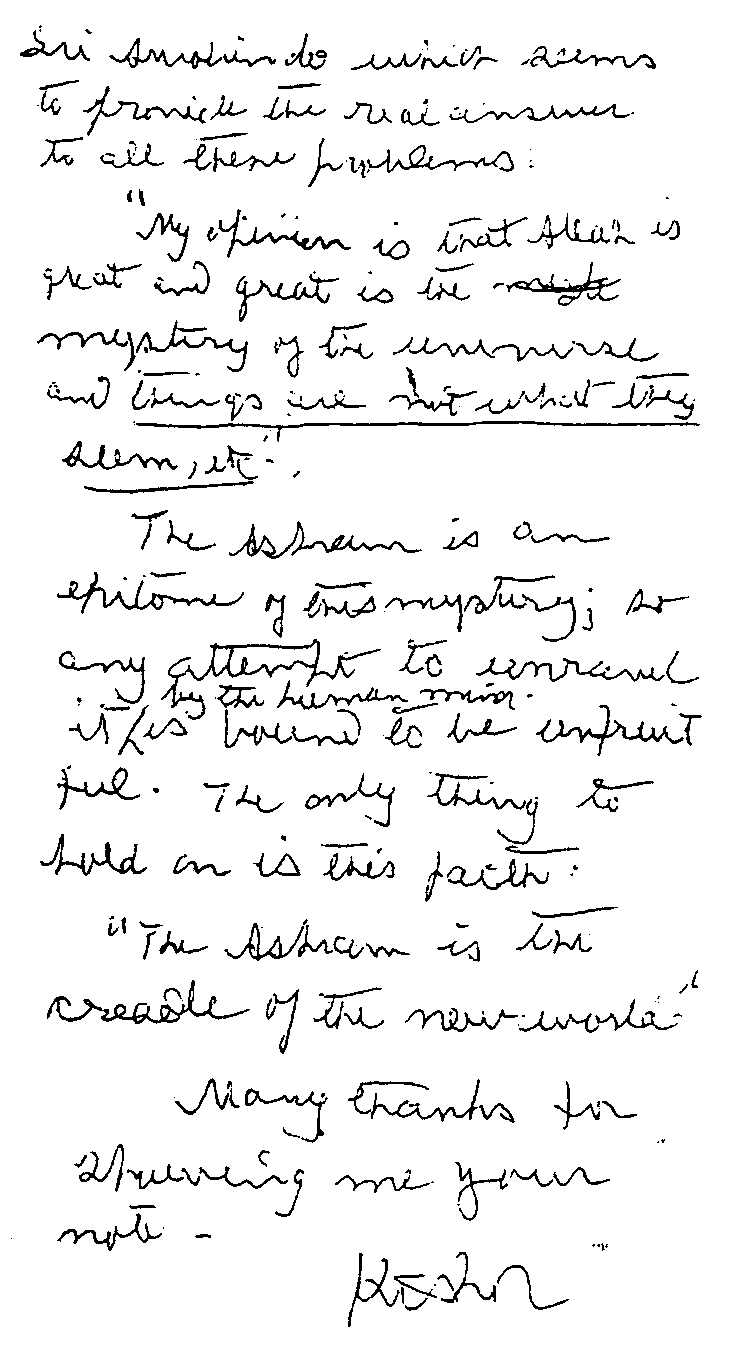 Sri Aurobindo which seems
to provide the real answer
to all these problems:
"My opinion is that Allah is
great and great is the
mystery of the universe
and things are not what they
seem, etc".
The Ashram is an
epitome of this mystery; so
any attempt to unravel
by the human mind
it is bound to be unfruit
ful. The only thing to
hold on is this faith:
"The Ashram is the
creadle of the new world"
Many thanks for
showing me your
note -
Kishor